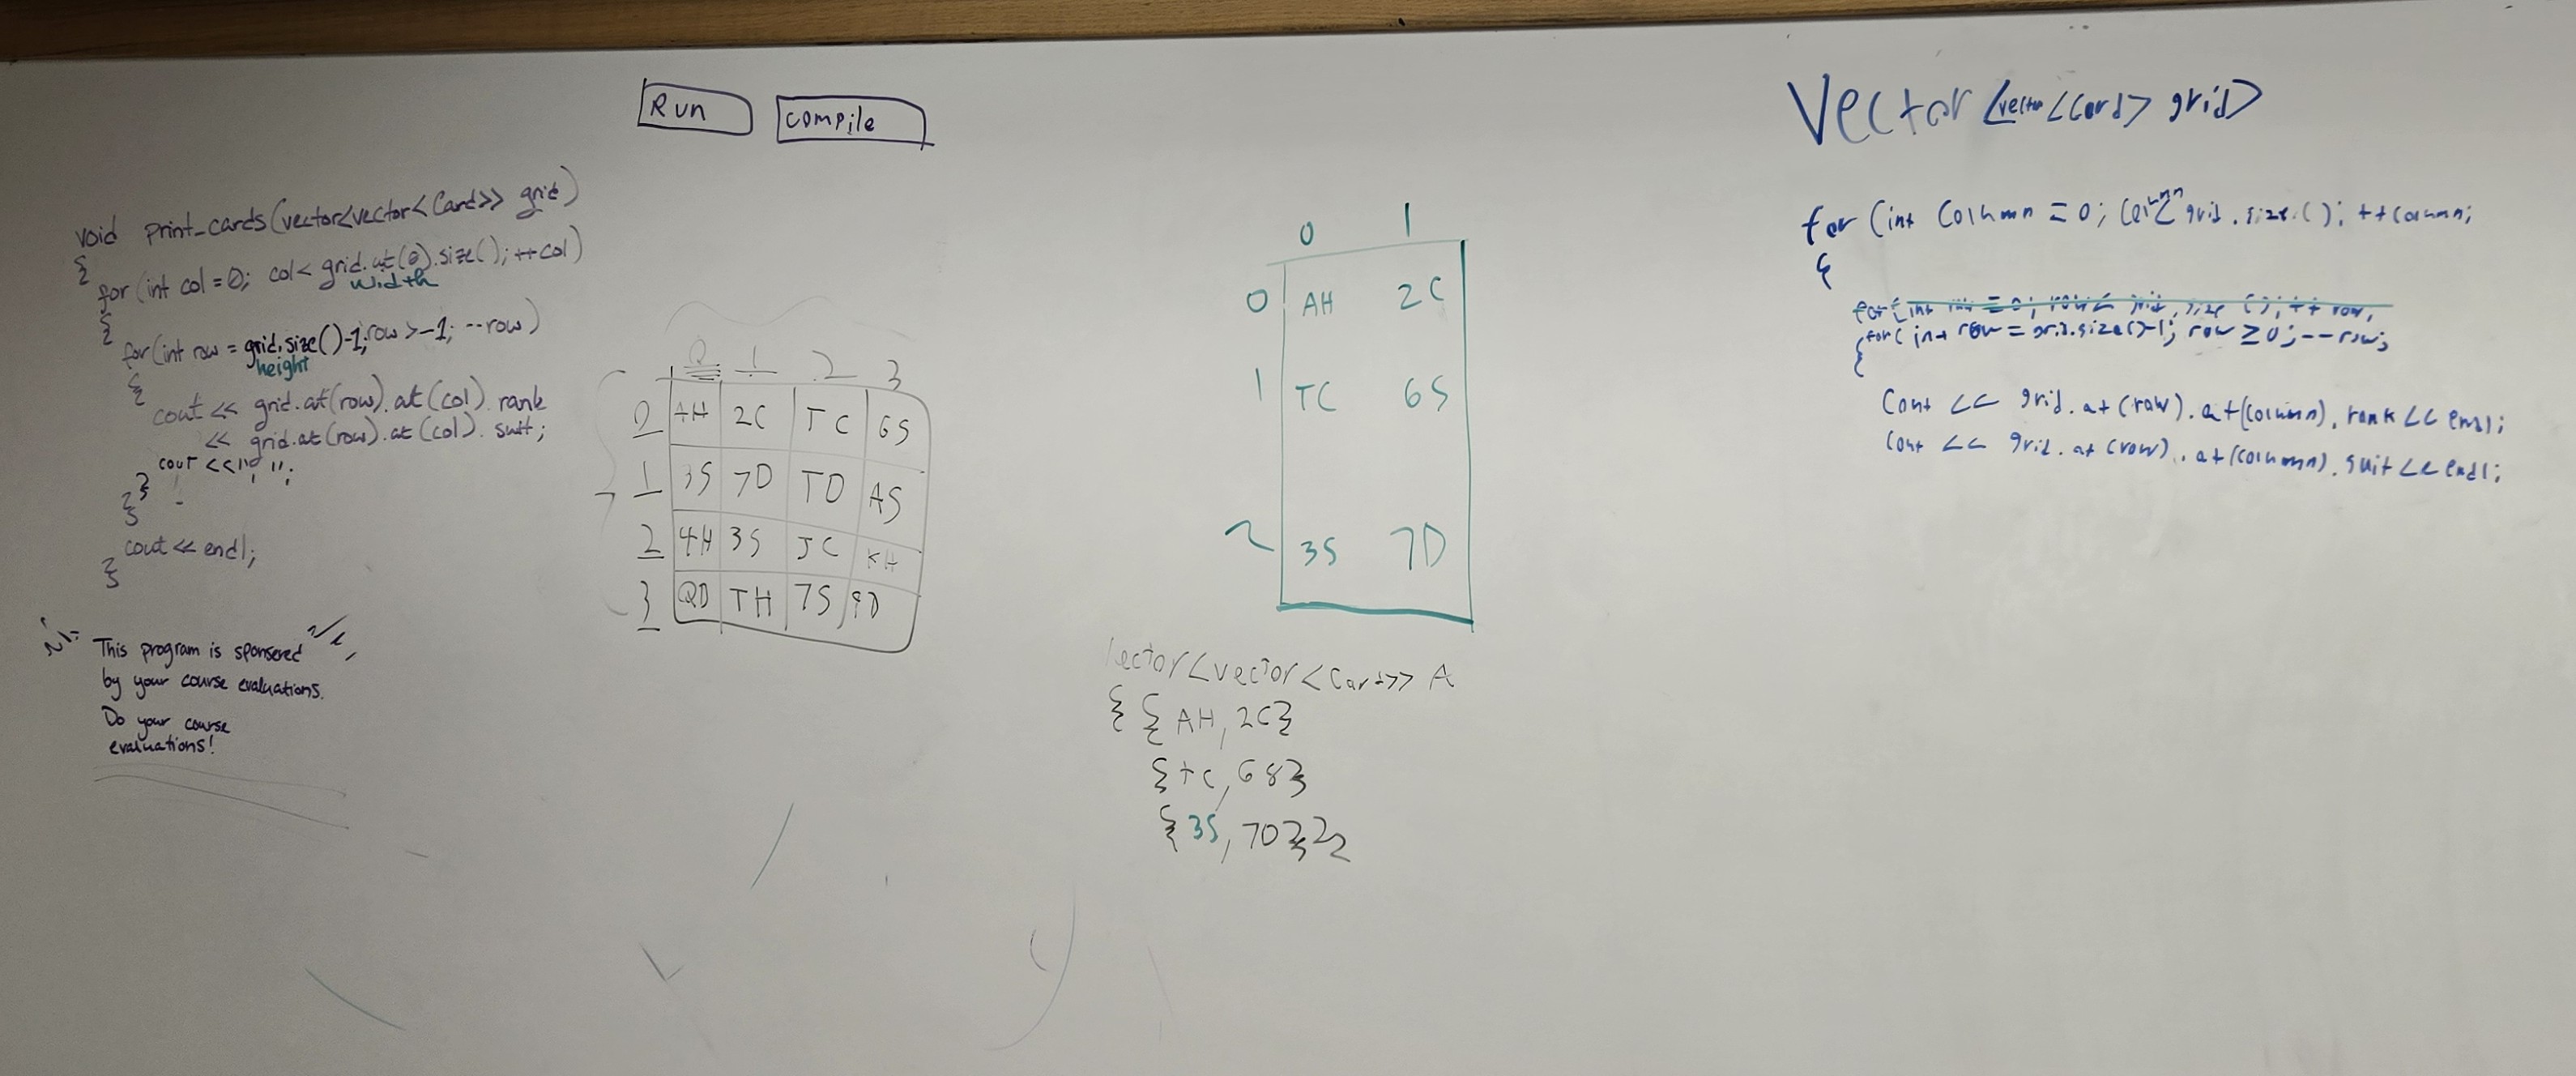 Run
compile
void print_cards(vector<vector<Card>> grid)
{
for(int col=0; col< grid.at(0).size(); ++col)
width
{
for(int row = grid.size()-1; row >-1; --row)
height
{
cout << grid.at(row).at(col).rank
<< grid.at(row).at(col).suit;
cout <<" ";
}
}
cout << endl;
}
This program is sponsered
by your course evaluations.
Do your course
evaluations!
0 1 2 3
0 AH 2C TC 6S
1 3S 7D TD AS
2 4H 3S JC KH
3 QD TH 7S 9D
0 1
0 AH 2C
1 TC 6S
2 3S 7D
vector<vector<Card>> A
{ { AH, 2C}
{TC, 6S}
{3S, 7D}}
Vector <vector <Card> grid>
for (int Column = 0; column < grid.size(); ++column;
{
for(int row = 0; row < grid.size(); ++ row;
for(int row = grid.size()-1; row ≥ 0; --row;
{
Cout << grid.at(row).at(column).rank << endl;
Cout << grid.at(row).at(column).suit << endl;